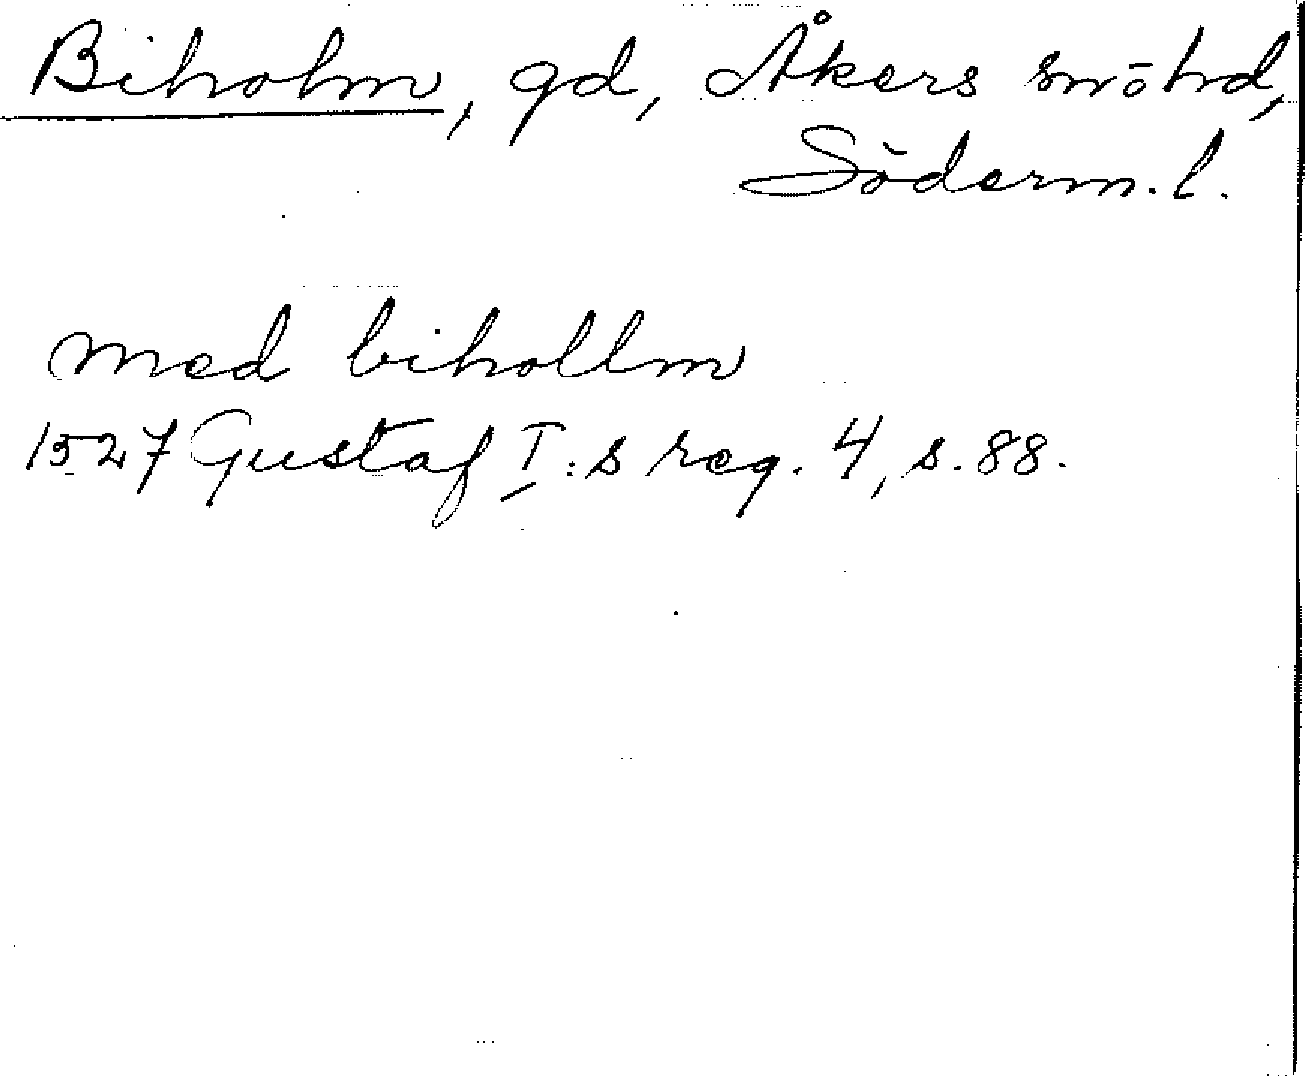 Biholm, gd, Åkers sn o hd,
Söderm. l.
med bihollm
1527 Gustaf I:s reg. 4, s. 88.